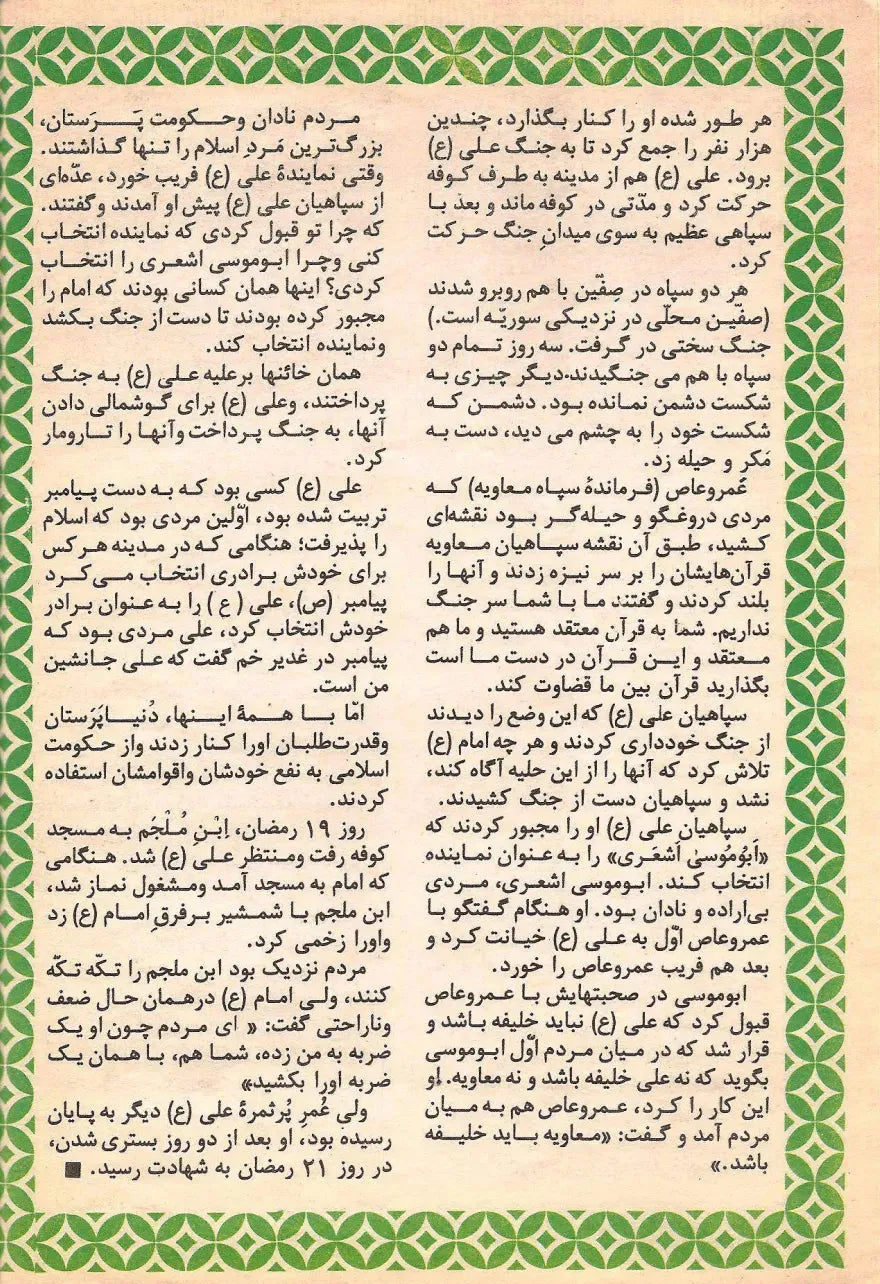 هر طور شده او را کنار بگذارد، چندین
هزار نفر را جمع کرد تا به جنگ علی (ع)
برود. علی (ع) هم از مدینه به طرف کوفه
حرکت کرد و مدّتی در کوفه ماند و بعد با
سپاهی عظیم به سوی میدانِ جنگ حرکت
کرد.
هر دو سپاه در صِفّین با هم روبرو شدند
(صفّین محلّی در نزدیکی سوریّه است.)
جنگ سختی در گرفت. سه روز تمام دو
سپاه با هم می جنگیدند. دیگر چیزی به
شکست دشمن نمانده بود. دشمن که
شکست خود را به چشم می دید، دست به
مَکر و حیله زد.
عَمروعاص (فرماندهٔ سپاه معاویه) که
مردی دروغگو و حیله‌گر بود نقشه‌ای
کشید، طبق آن نقشه سپاهیان معاویه
قرآن‌هایشان را بر سر نیزه زدند و آنها را
بلند کردند و گفتند ما با شما سر جنگ
نداریم. شما به قرآن معتقد هستید و ما هم
معتقد و این قرآن در دست ما است
بگذارید قرآن بین ما قضاوت کند.
سپاهیان علی (ع) که این وضع را دیدند
از جنگ خودداری کردند و هر چه امام (ع)
تلاش کرد که آنها را از این حلیه آگاه کند،
نشد و سپاهیان دست از جنگ کشیدند.
سپاهیان علی (ع) او را مجبور کردند که
«اَبوُموُسیٰ اَشعَری» را به عنوان نماینده
انتخاب کند. ابوموسی اشعری، مردی
بی‌اراده و نادان بود. او هنگام گفتگو با
عمروعاص اوّل به علی (ع) خیانت کرد و
بعد هم فریب عمروعاص را خورد.
ابوموسی در صحبتهایش با عمروعاص
قبول کرد که علی (ع) نباید خلیفه باشد و
قرار شد که در میان مردم اوّل ابوموسی
بگوید که نه علی خلیفه باشد و نه معاویه. او
این کار را کرد، عمروعاص هم به میان
مردم آمد و گفت: «معاویه باید خلیفه
باشد.»
مردم نادان وحکومت پَرَستان،
بزرگ‌ترین مَردِ اسلام را تنها گذاشتند.
وقتی نمایندهٔ علی (ع) فریب خورد، عدّه‌ای
از سپاهیان علی (ع) پیش او آمدند وگفتند.
که چرا تو قبول کردی که نماینده انتخاب
کنی وچرا ابوموسی اشعری را انتخاب
کردی؟ اینها همان کسانی بودند که امام را
مجبور کرده بودند تا دست از جنگ بکشد
ونماینده انتخاب کند.
همان خائنها برعلیه علی (ع) به جنگ
پرداختند، وعلی (ع) برای گوشمالی دادن
آنها، به جنگ پرداخت وآنها را تارومار
کرد.
علی (ع) کسی بود که به دست پیامبر
تربیت شده بود، اوّلین مردی بود که اسلام
را پذیرفت؛ هنگامی که در مدینه هرکس
برای خودش برادری انتخاب می‌کرد
پیامبر (ص)، علی (ع) را به عنوان برادر
خودش انتخاب کرد، علی مردی بود که
پیامبر در غدیر خم گفت که علی جانشین
من است.
امّا با همهٔ اینها، دُنیاپَرَستان
وقدرت‌طلبان اورا کنار زدند واز حکومت
اسلامی به نفع خودشان واقوامشان استفاده
کردند.
روز ۱۹ رمضان، اِبْنِ مُلْجَم به مسجد
کوفه رفت ومنتظر علی (ع) شد. هنگامی
که امام به مسجد آمد ومشغول نماز شد،
ابن ملجم با شمشیر برفرقِ امام (ع) زد
واورا زخمی کرد.
مردم نزدیک بود ابن ملجم را تکّه تکّه
کنند، ولی امام (ع) درهمان حال ضعف
وناراحتی گفت: « ای مردم چون او یک
ضربه به من زده، شما هم، با همان یک
ضربه اورا بکشید»
ولی عُمرِ پُرثمرهٔ علی (ع) دیگر به پایان
رسیده بود، او بعد از دو روز بستری شدن،
در روز ۲۱ رمضان به شهادت رسید. ■